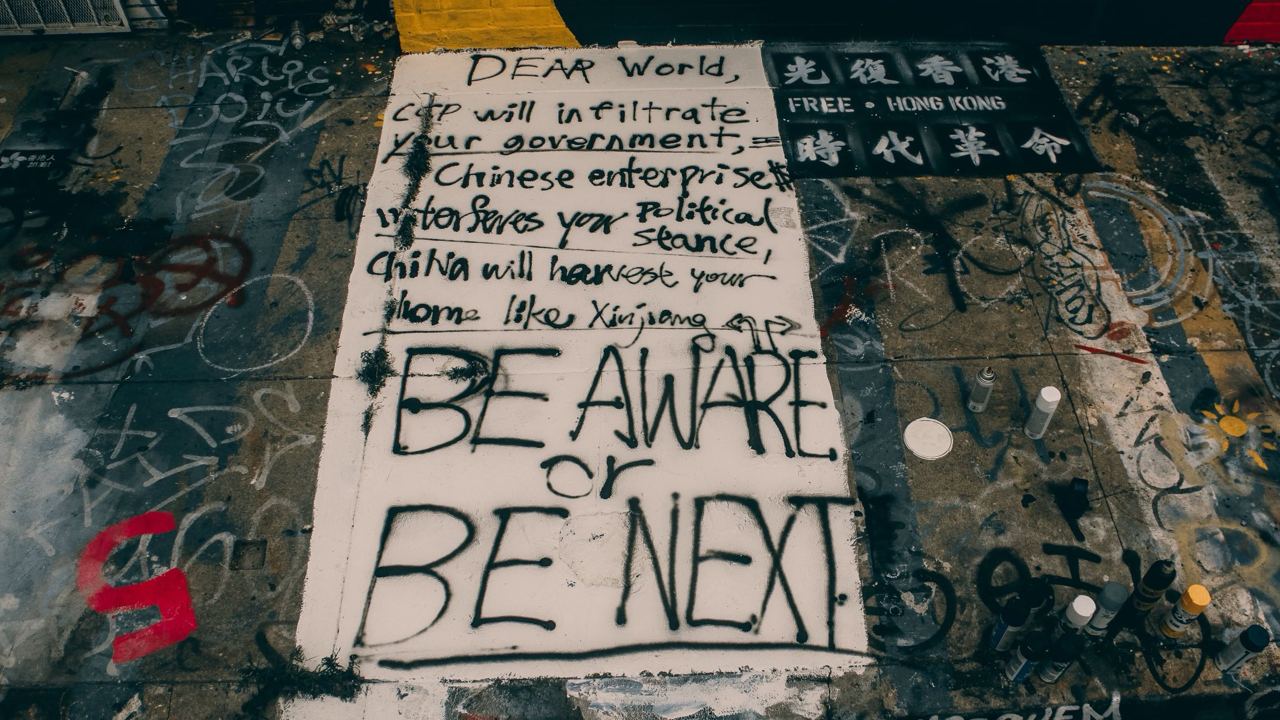 CHARLEE
DEAR World,
CCP will infiltrate
your government,
Chinese enterprise
interferes your Political
stance,
China will harvest your
home like Xinjiang
BE AWARE
or
BE NEXT
光復香港
FREE • HONG KONG
時代革命